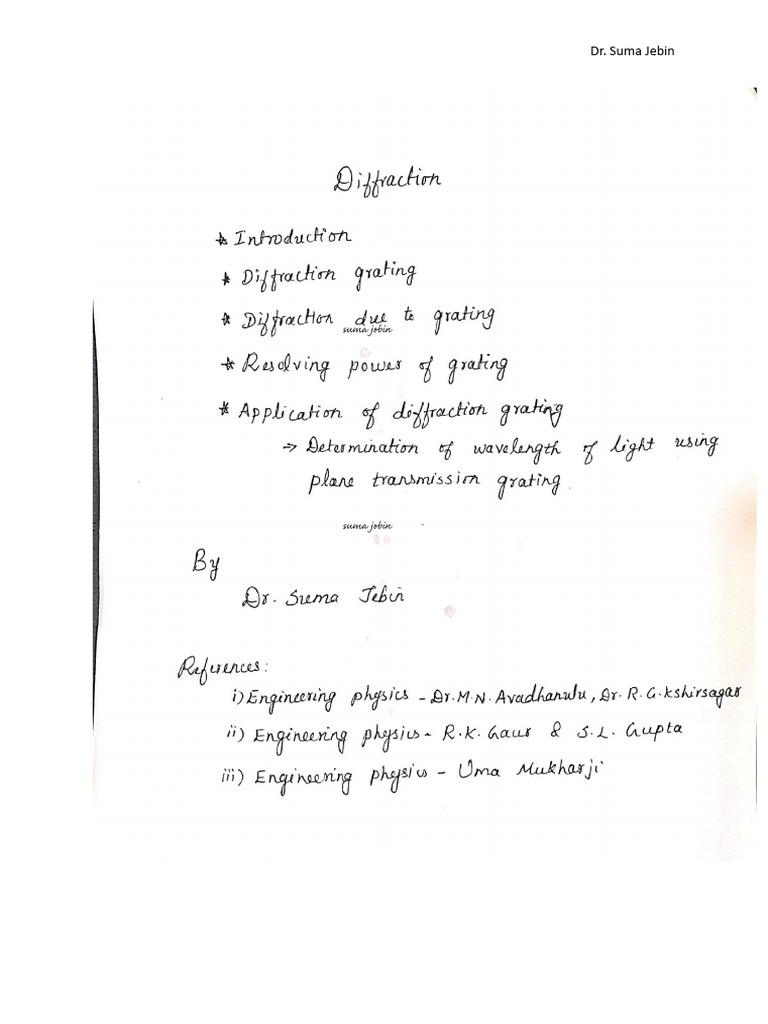 Dr. Suma Jebin
Diffraction
* Introduction
* Diffraction grating
* Diffraction due to grating
suma jebin
* Resolving power of grating
* Application of diffraction grating
→ Determination of wavelength of light using
plane transmission grating.
suma jebin
By
Dr. Suma Jebin
References:
i) Engineering physics - Dr. M. N. Avadhanulu, Dr. R. G. kshirsagar
ii) Engineering physics - R. K. Gaur & S. L. Gupta
iii) Engineering physics - Uma Mukharji